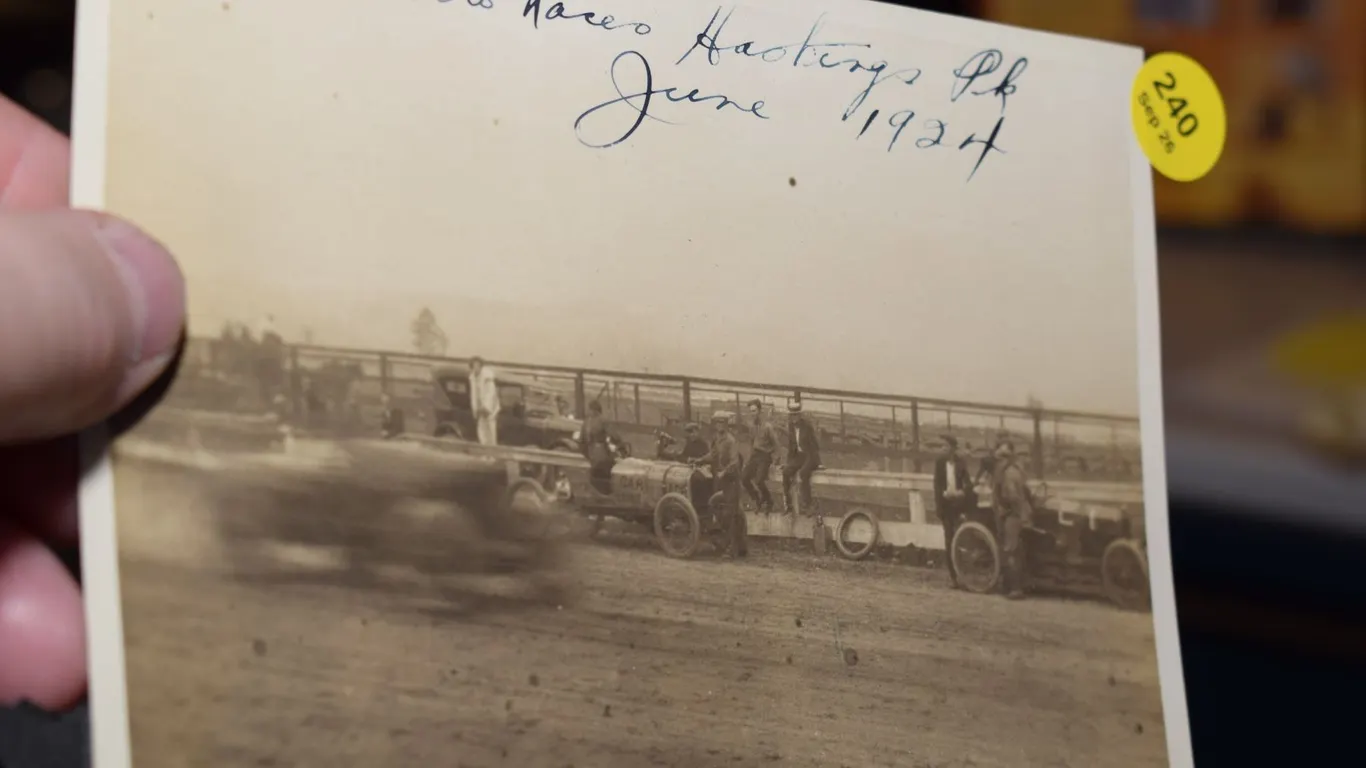 Races Hastings Pk
June 1924
240
Sep 26